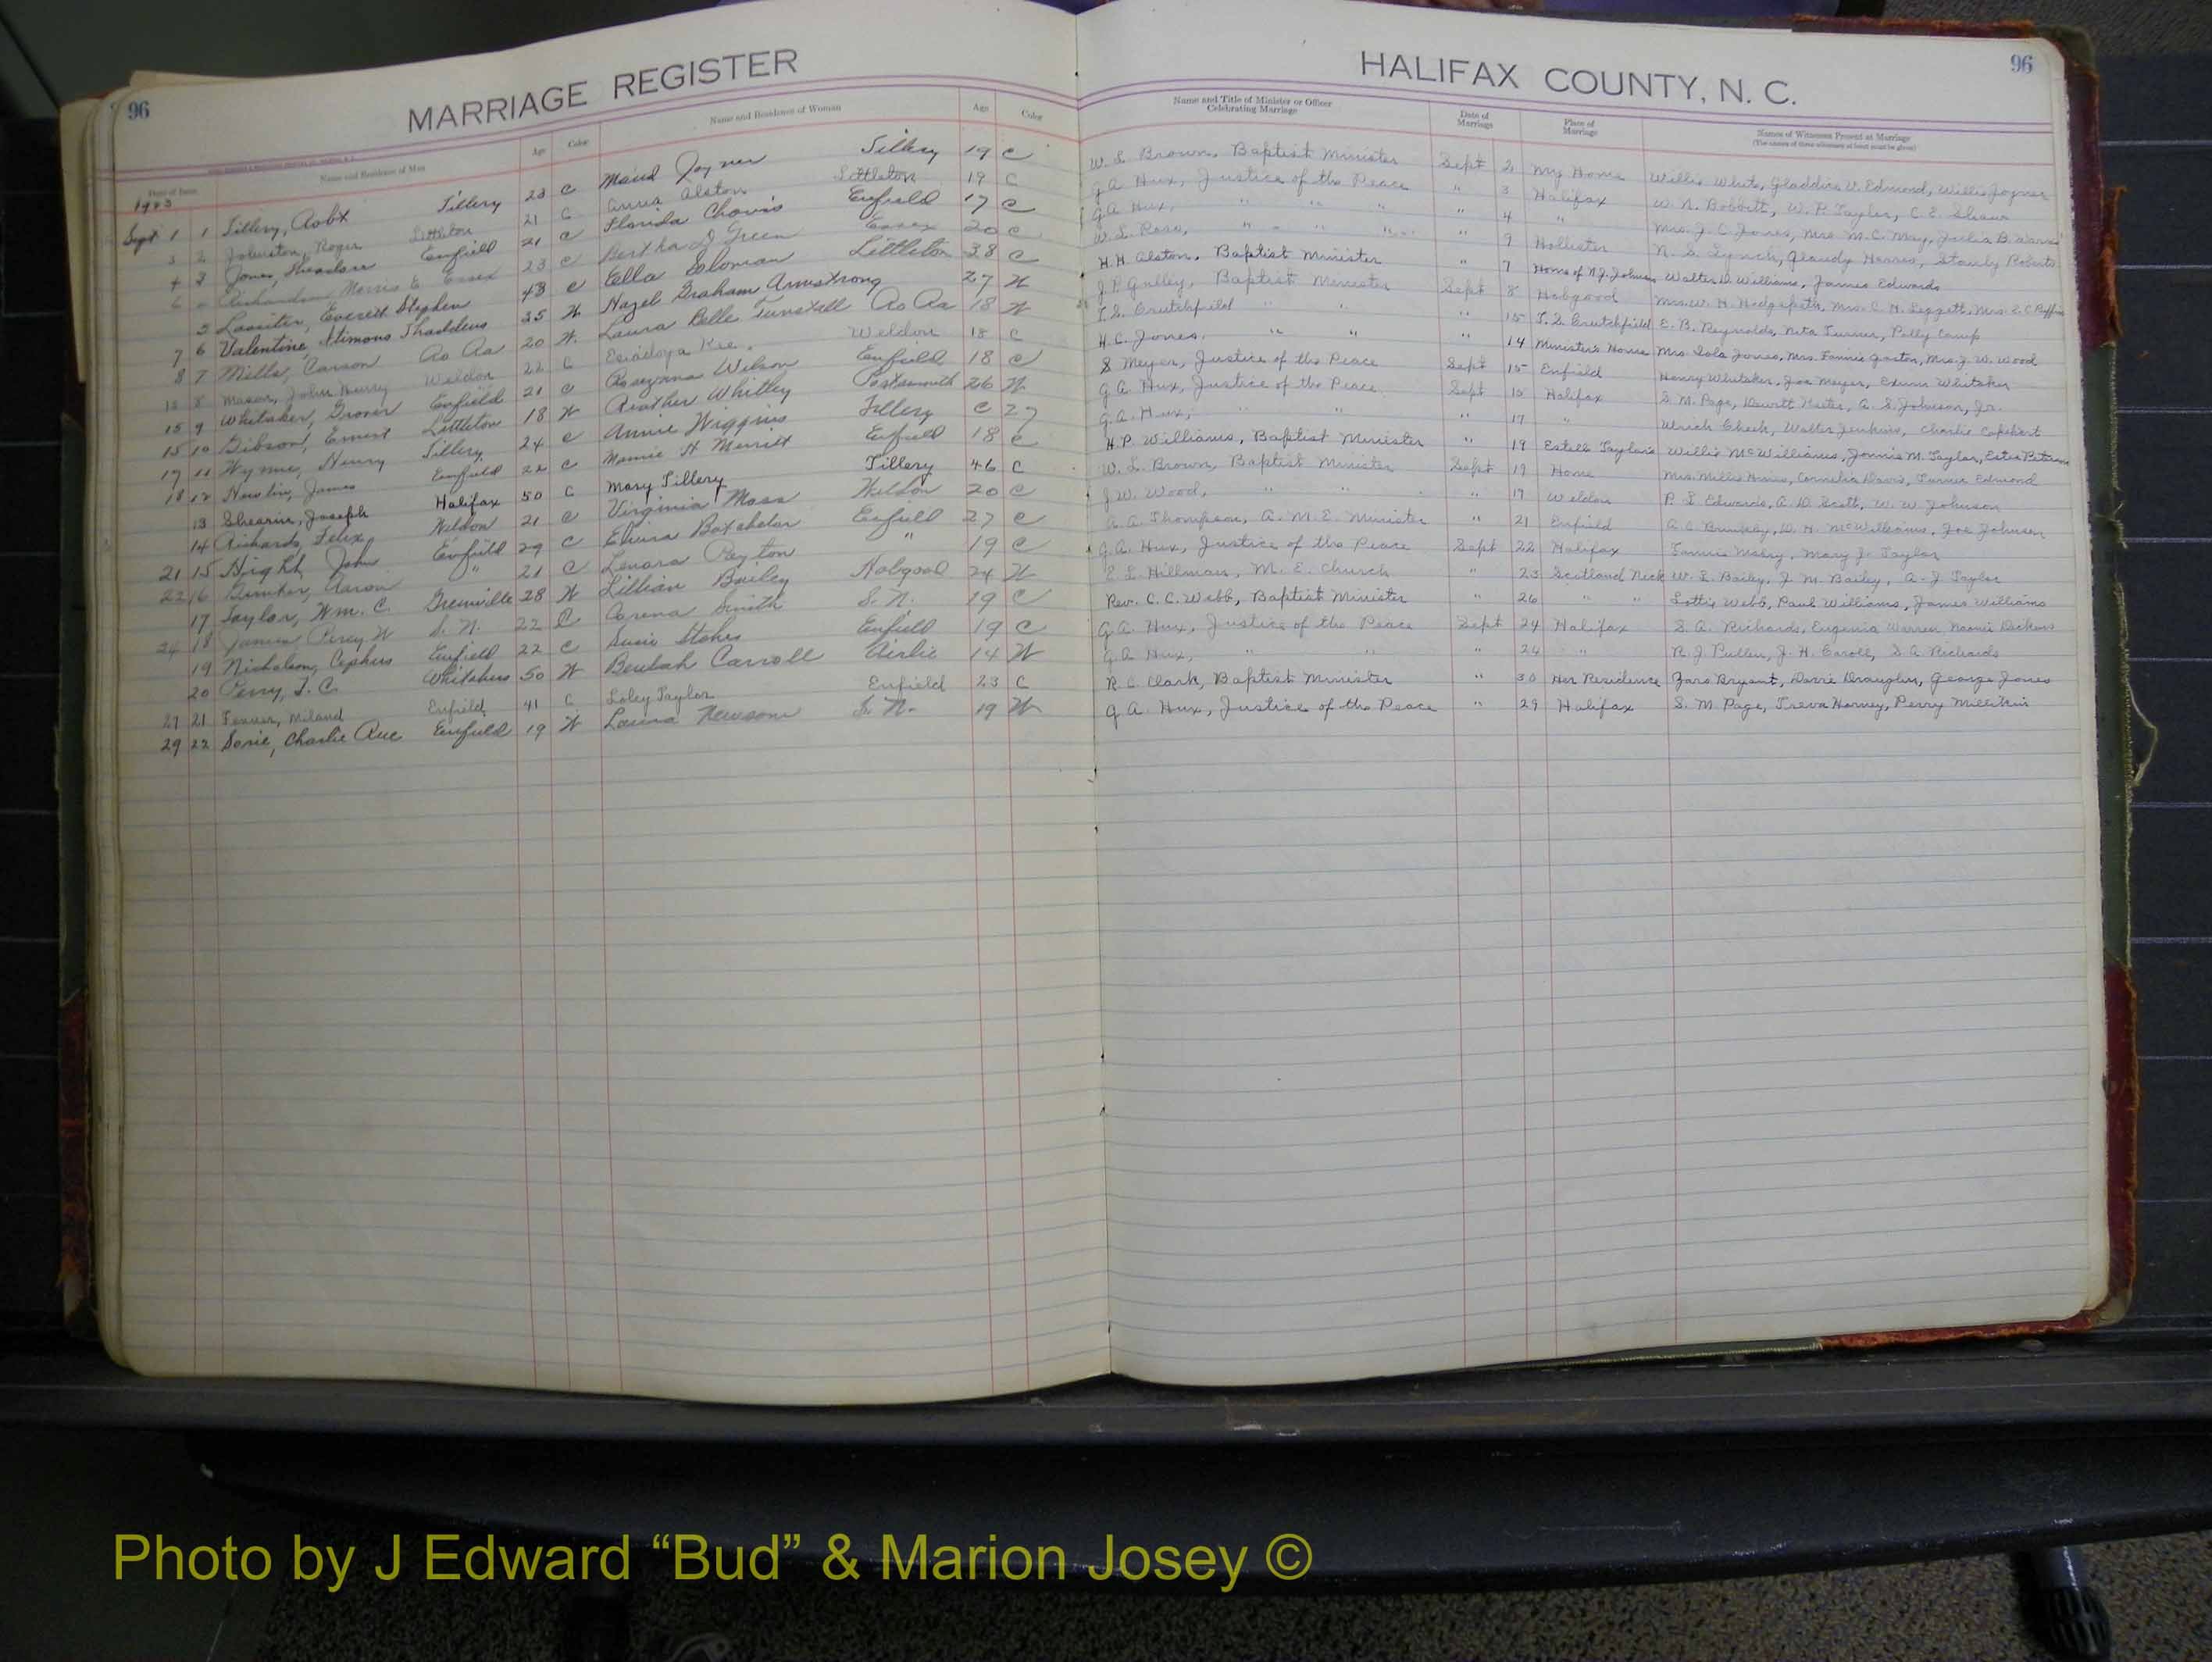 96
MARRIAGE REGISTER
HALIFAX COUNTY, N. C.
96
Date of Issue Name and Residence of Man Age Color Name and Residence of Woman Age Color Name and Title of Minister or Officer Celebrating Marriage Date of Marriage Place of Marriage Names of Witnesses Present at Marriage
Sept 1 1 Tillery, Robt Tillery 23 C Maud Joyner Tillery 19 C W. L. Brown, Baptist Minister Sept 2 My Home Willie White, Gladdice V. Edmond, Willie Joyner
3 2 Johnston, Roger Littleton 21 C Anna Alston Littleton 19 C G. A. Hux, Justice of the Peace " 3 Halifax W. N. Bobbitt, W. P. Taylor, C. E. Shaw
4 3 Jones, Enfield 21 C Florida Chavis Enfield 17 C G. A. Hux, " " " " 4 " Mrs. J. C. Jones, Mrs. M. C. May, Julia B.
6 Richardson Morris E. Essex 23 C Bertha D Green Essex 20 C W. L. Ross, " " " " " 9 Hollister N. S. Lynch, Harris, Roberts
5 Lassiter, Everett Stephen 43 C Ella Soloman Littleton 38 C H. H. Alston, Baptist Minister " 7 Home of N. J. Johnson Walter D. Williams, James Edwards
7 6 Valentine, Thaddeus 25 W Hazel Graham Armstrong 27 W J. P. Gulley, Baptist Minister Sept 8 Hobgood Mrs. W. H. Hedgepeth, Mrs. C. H. Leggett, Mrs. Z. C. Ruffin
8 7 Mills, Carson Ro Ra 20 W Laura Belle Tunstall Ro Ra 18 W T. S. Crutchfield " " " 15 T. S. Crutchfield E. B. Reynolds, Neta Turner, Polly Camp
8 John Henry Weldon 22 C Kee Weldon 18 C H. C. Jones, " " " 14 Minister's Home Mrs. Lola Jones, Mrs. Fannie Gaston, Mrs. J. W. Wood
15 9 Whitaker, Grover Enfield 21 C Roseyanna Wilson Enfield 18 C S Meyer, Justice of the Peace Sept 15 Enfield Henry Whitaker, Joe Meyer, Whitaker
15 10 Gibson, Ernest Littleton 18 W Whitley Portsmouth 26 W G. A. Hux, Justice of the Peace Sept 15 Halifax S. M. Page, Dewitt Keeter, A. S. Johnson, Jr.
17 11 Wynne, Henry Tillery 24 C Annie Wiggins Tillery C 27 G. A. Hux, " " " 17 " Ulrich Cheek, Walter Jenkins, Charlie Copehart
18 12 James Enfield 22 C Mamie H Merritt Enfield 18 C H. P. Williams, Baptist Minister " 19 Estell Taylor's Willie McWilliams, Jonnie M. Taylor, Estes
13 Shearin, Joseph Halifax 50 C Mary Tillery Tillery 46 C W. L. Brown, Baptist Minister Sept 19 Home Mrs. Millie Cornelia Davis, Turner Edmond
14 Richards, Felix Weldon 21 C Virginia Moss Weldon 20 C J. W. Wood, " " " 17 Weldon P. L. Edwards, A. D. Scott, W. W. Johnson
21 15 Hight, John Enfield 29 C Batchelor Enfield 27 C A. A. Thompson, A. M. E. Minister " 21 Enfield A. C. D. H. McWilliams, Joe Johnson
22 16 Aaron " 21 C Lenora Peyton " 19 C G. A. Hux, Justice of the Peace Sept 22 Halifax Mary J. Taylor
17 Taylor, Wm. C. Greenville 28 W Lillian Bailey Hobgood 24 W E. L. Hillman, M. E. Church " 23 Scotland Neck W. L. Bailey, J. M. Bailey, A. J. Taylor
24 18 James Percy W S. N. 22 C Corena Smith S. N. 19 C Rev. C. C. Webb, Baptist Minister " 26 " " Lottie Webb, Paul Williams, James Williams
19 Nicholson, Cephus Enfield 22 C Susie Stokes Enfield 19 C G. A. Hux, Justice of the Peace Sept 24 Halifax S. A. Richards, Eugenia Warren Naomi Dickens
20 Perry, T. C. Whitakers 50 W Beulah Carroll Airlie 14 W G. A. Hux, " " " 24 " R. J. Pullen, J. H. Caroll, S. A. Richards
27 21 Milard Enfield 41 C Loley Taylor Enfield 23 C R. C. Clark, Baptist Minister " 30 Her Residence Zaro Bryant, Dorrie Draughn, George Jones
29 22 Sorie, Charlie Rue Enfield 19 W Laura Newsom S. N. 19 W G. A. Hux, Justice of the Peace " 29 Halifax S. M. Page, Treva Harvey, Perry Millikin
Photo by J Edward “Bud” & Marion Josey ©